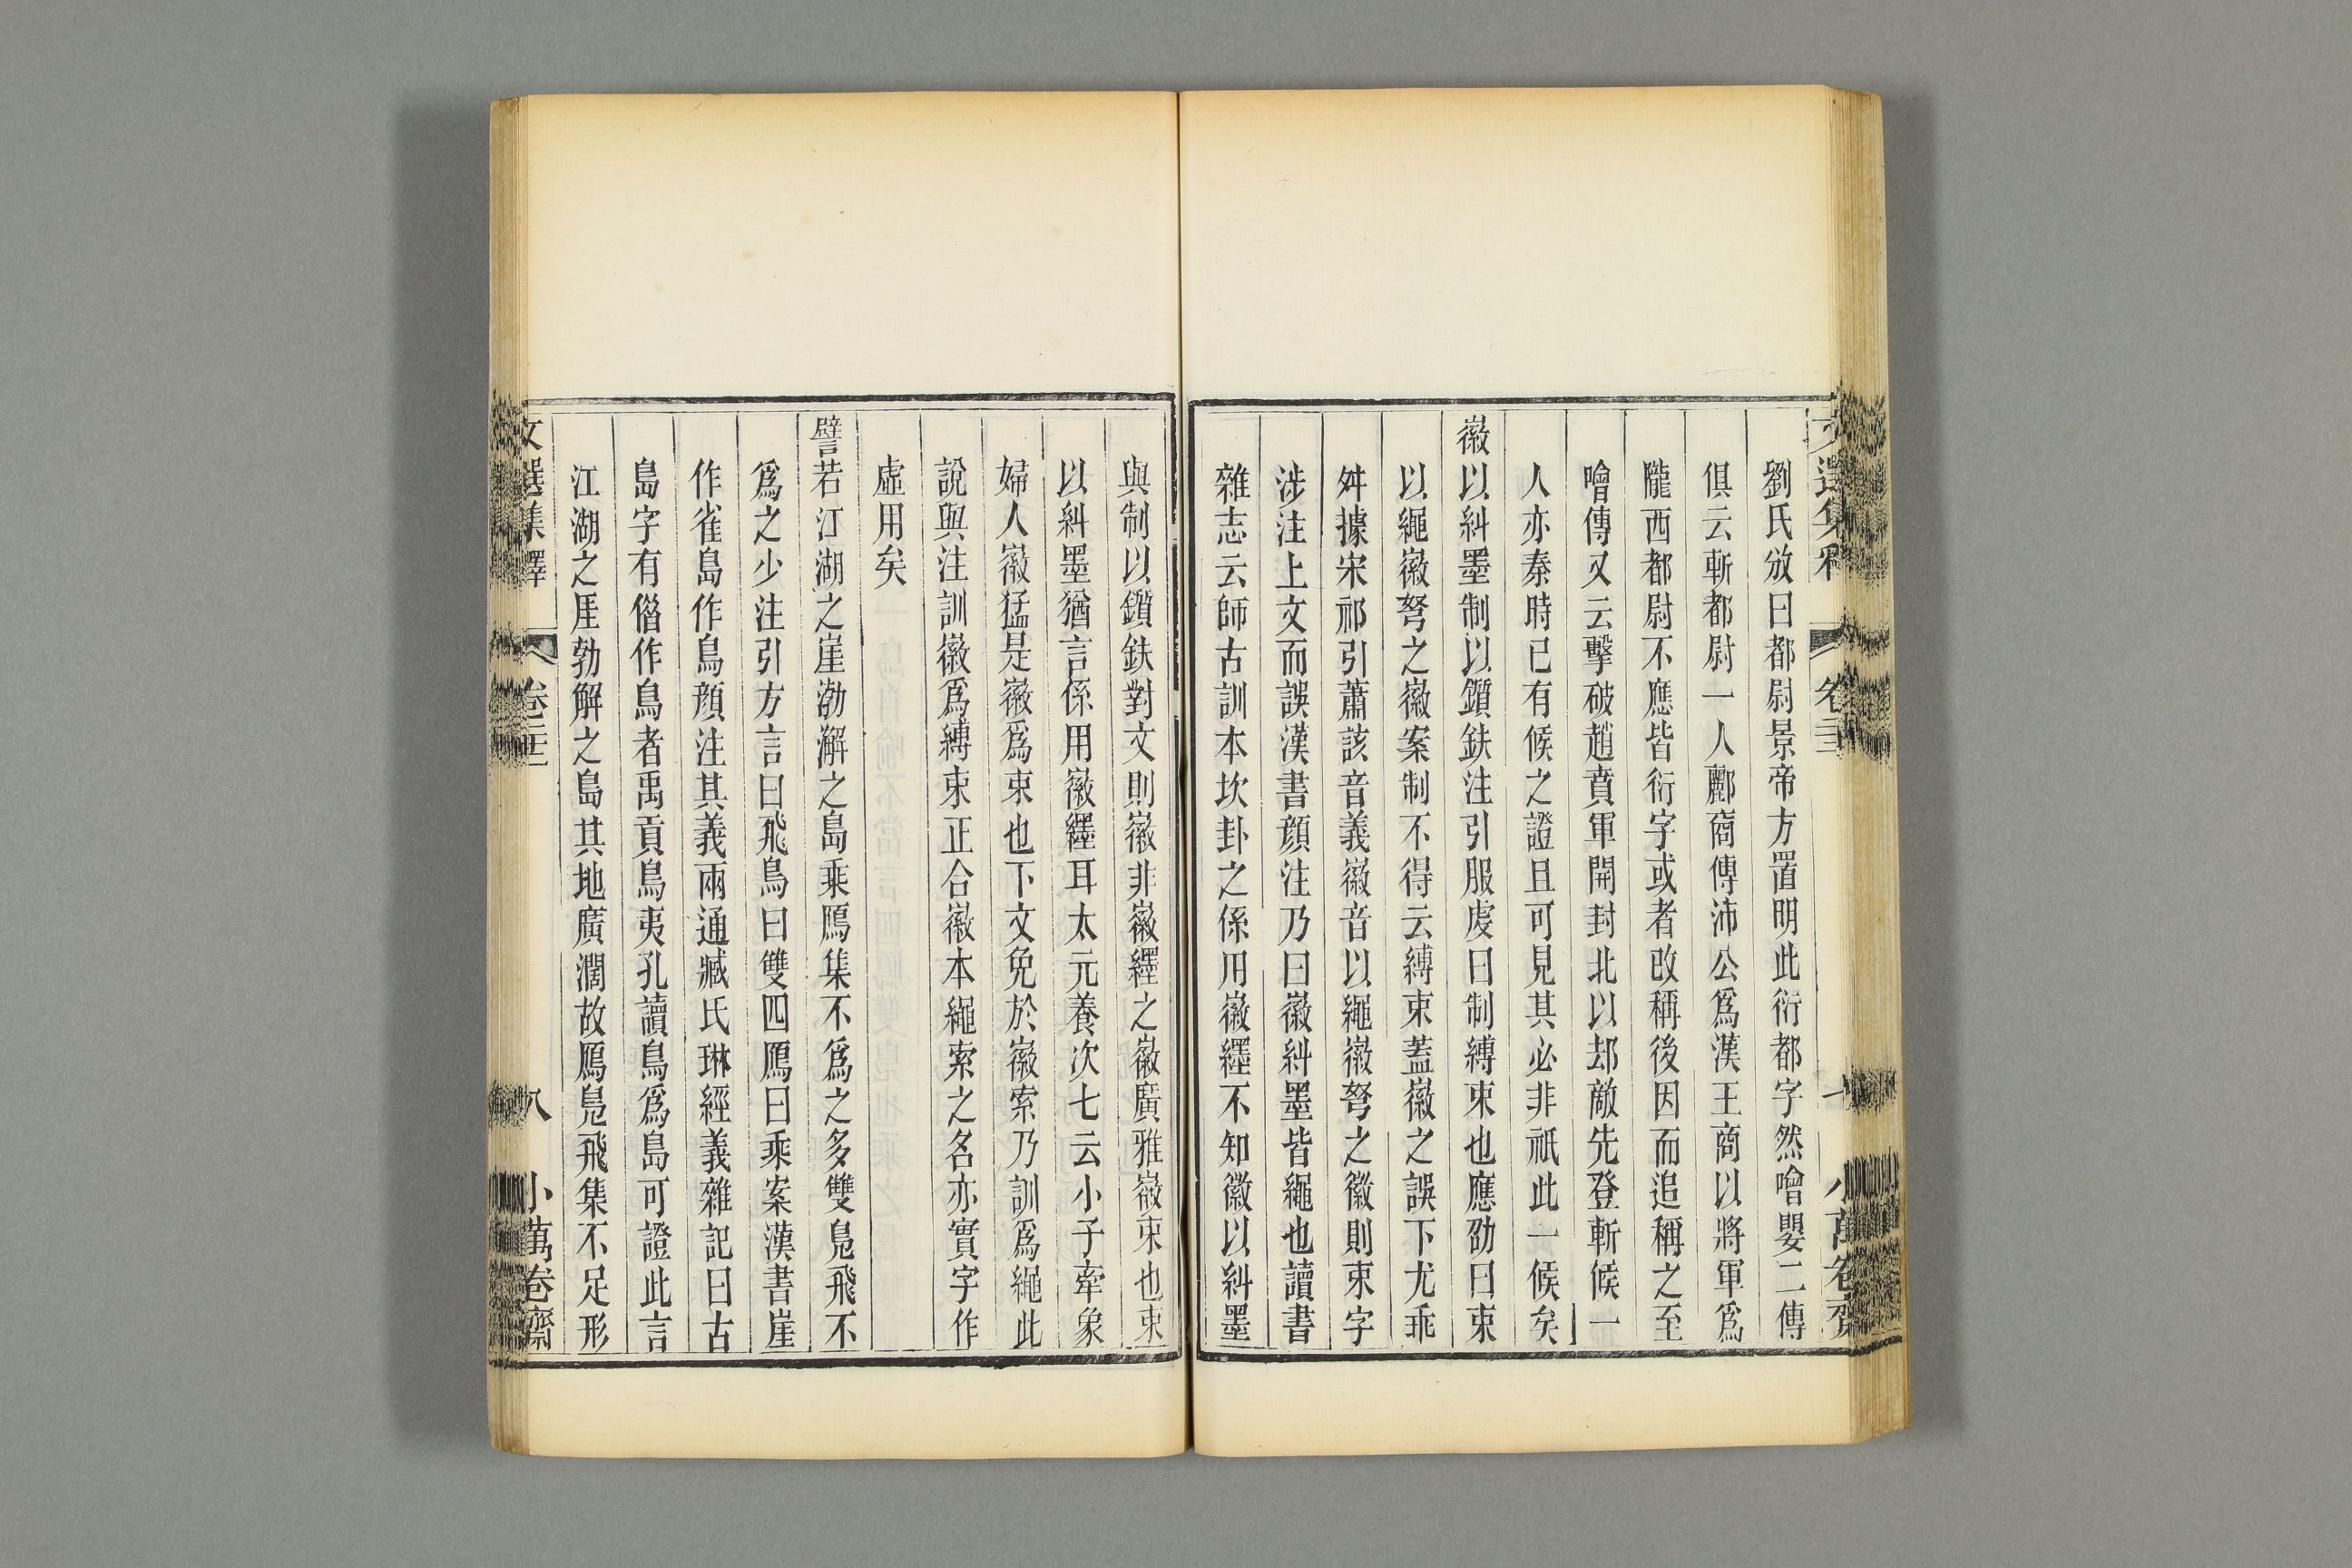 劉氏攽曰都尉景帝方置明此衍都字然噲嬰二傳
俱云斬都尉一人酈商傳沛公爲漢王商以將軍爲
隴西都尉不應皆衍字或者改稱後因而追稱之至
噲傳又云擊破趙賁軍開封北以却敵先登斬候一
人亦秦時已有候之證且可見其必非祇此一候矣
徽以糾墨制以鑕鈇注引服虔曰制縛束也應劭曰束
以繩徽弩之徽案制不得云縛束蓋徽之誤下尤乖
舛據宋祁引蕭該音義徽音以繩徽弩之徽則束字
涉注上文而誤漢書顔注乃曰徽糾墨皆繩也讀書
雜志云師古訓本坎卦之係用徽纆不知徽以糾墨
與制以鑕鈇對文則徽非徽纆之徽廣雅徽束也束
以糾墨猶言係用徽纆耳太元養次七云小子牽象
婦人徽猛是徽爲束也下文免於徽索乃訓爲繩此
說與注訓徽爲縛束正合徽本繩索之名亦實字作
虛用矣
譬若江湖之崖渤澥之島乘鴈集不爲之多雙鳧飛不
爲之少注引方言曰飛鳥曰雙四鴈曰乘案漢書崖
作雀島作鳥顔注其義兩通臧氏琳經義雜記曰古
島字有偺作鳥者禹貢鳥夷孔讀鳥爲島可證此言
江湖之厓勃解之島其地廣濶故鴈鳧飛集不足形
文選集釋
卷二十三
八
小萬卷齋